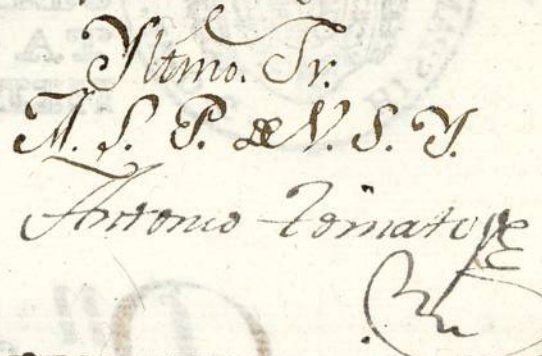 Yltmo. Sr.
A. S. P. de V. S. Y.
Antonio Tomati